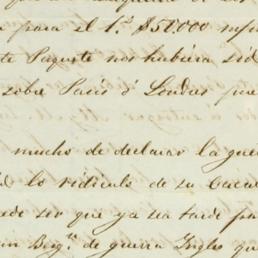 para el 1.º $50.000
te Paquete nos hubiera sid
sobre Paris ó Londres pue
mucho de declarar la gue
lo ridículo de su
ede ser que ya sea tarde pa
un Berg.n de guerra Ingles qu